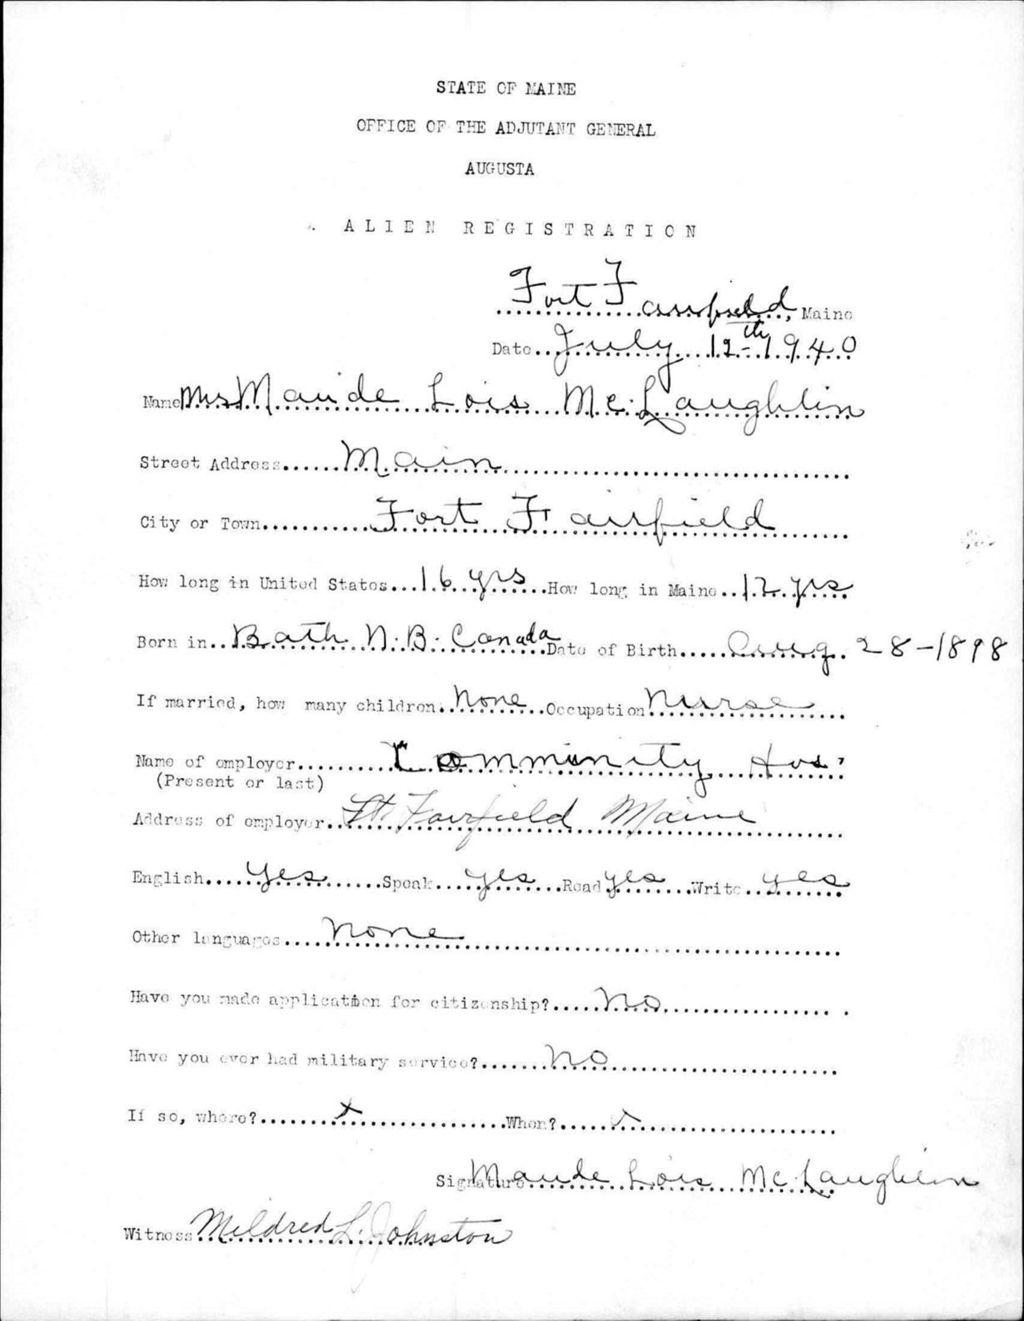 STATE OF MAINE
OFFICE OF THE ADJUTANT GENERAL
AUGUSTA
ALIEN REGISTRATION
Fort Fairfield, Maine
Date July 12th 1940
Name Mrs Maude Lois McLaughlin
Street Address Main
City or Town Fort Fairfield
How long in United States 16 yrs How long in Maine 12 yrs
Born in Bath N.B. Canada Date of Birth Aug. 28-1898
If married, how many children None Occupation Nurse
Name of employer Community Hos.
(Present or last)
Address of employer Ft. Fairfield Maine
English Yes Speak yes Read yes Write yes
Other languages None
Have you made application for citizenship? No
Have you ever had military service? No
If so, where? x When? x
Signature Maude Lois McLaughlin
Witness Mildred L. Johnston